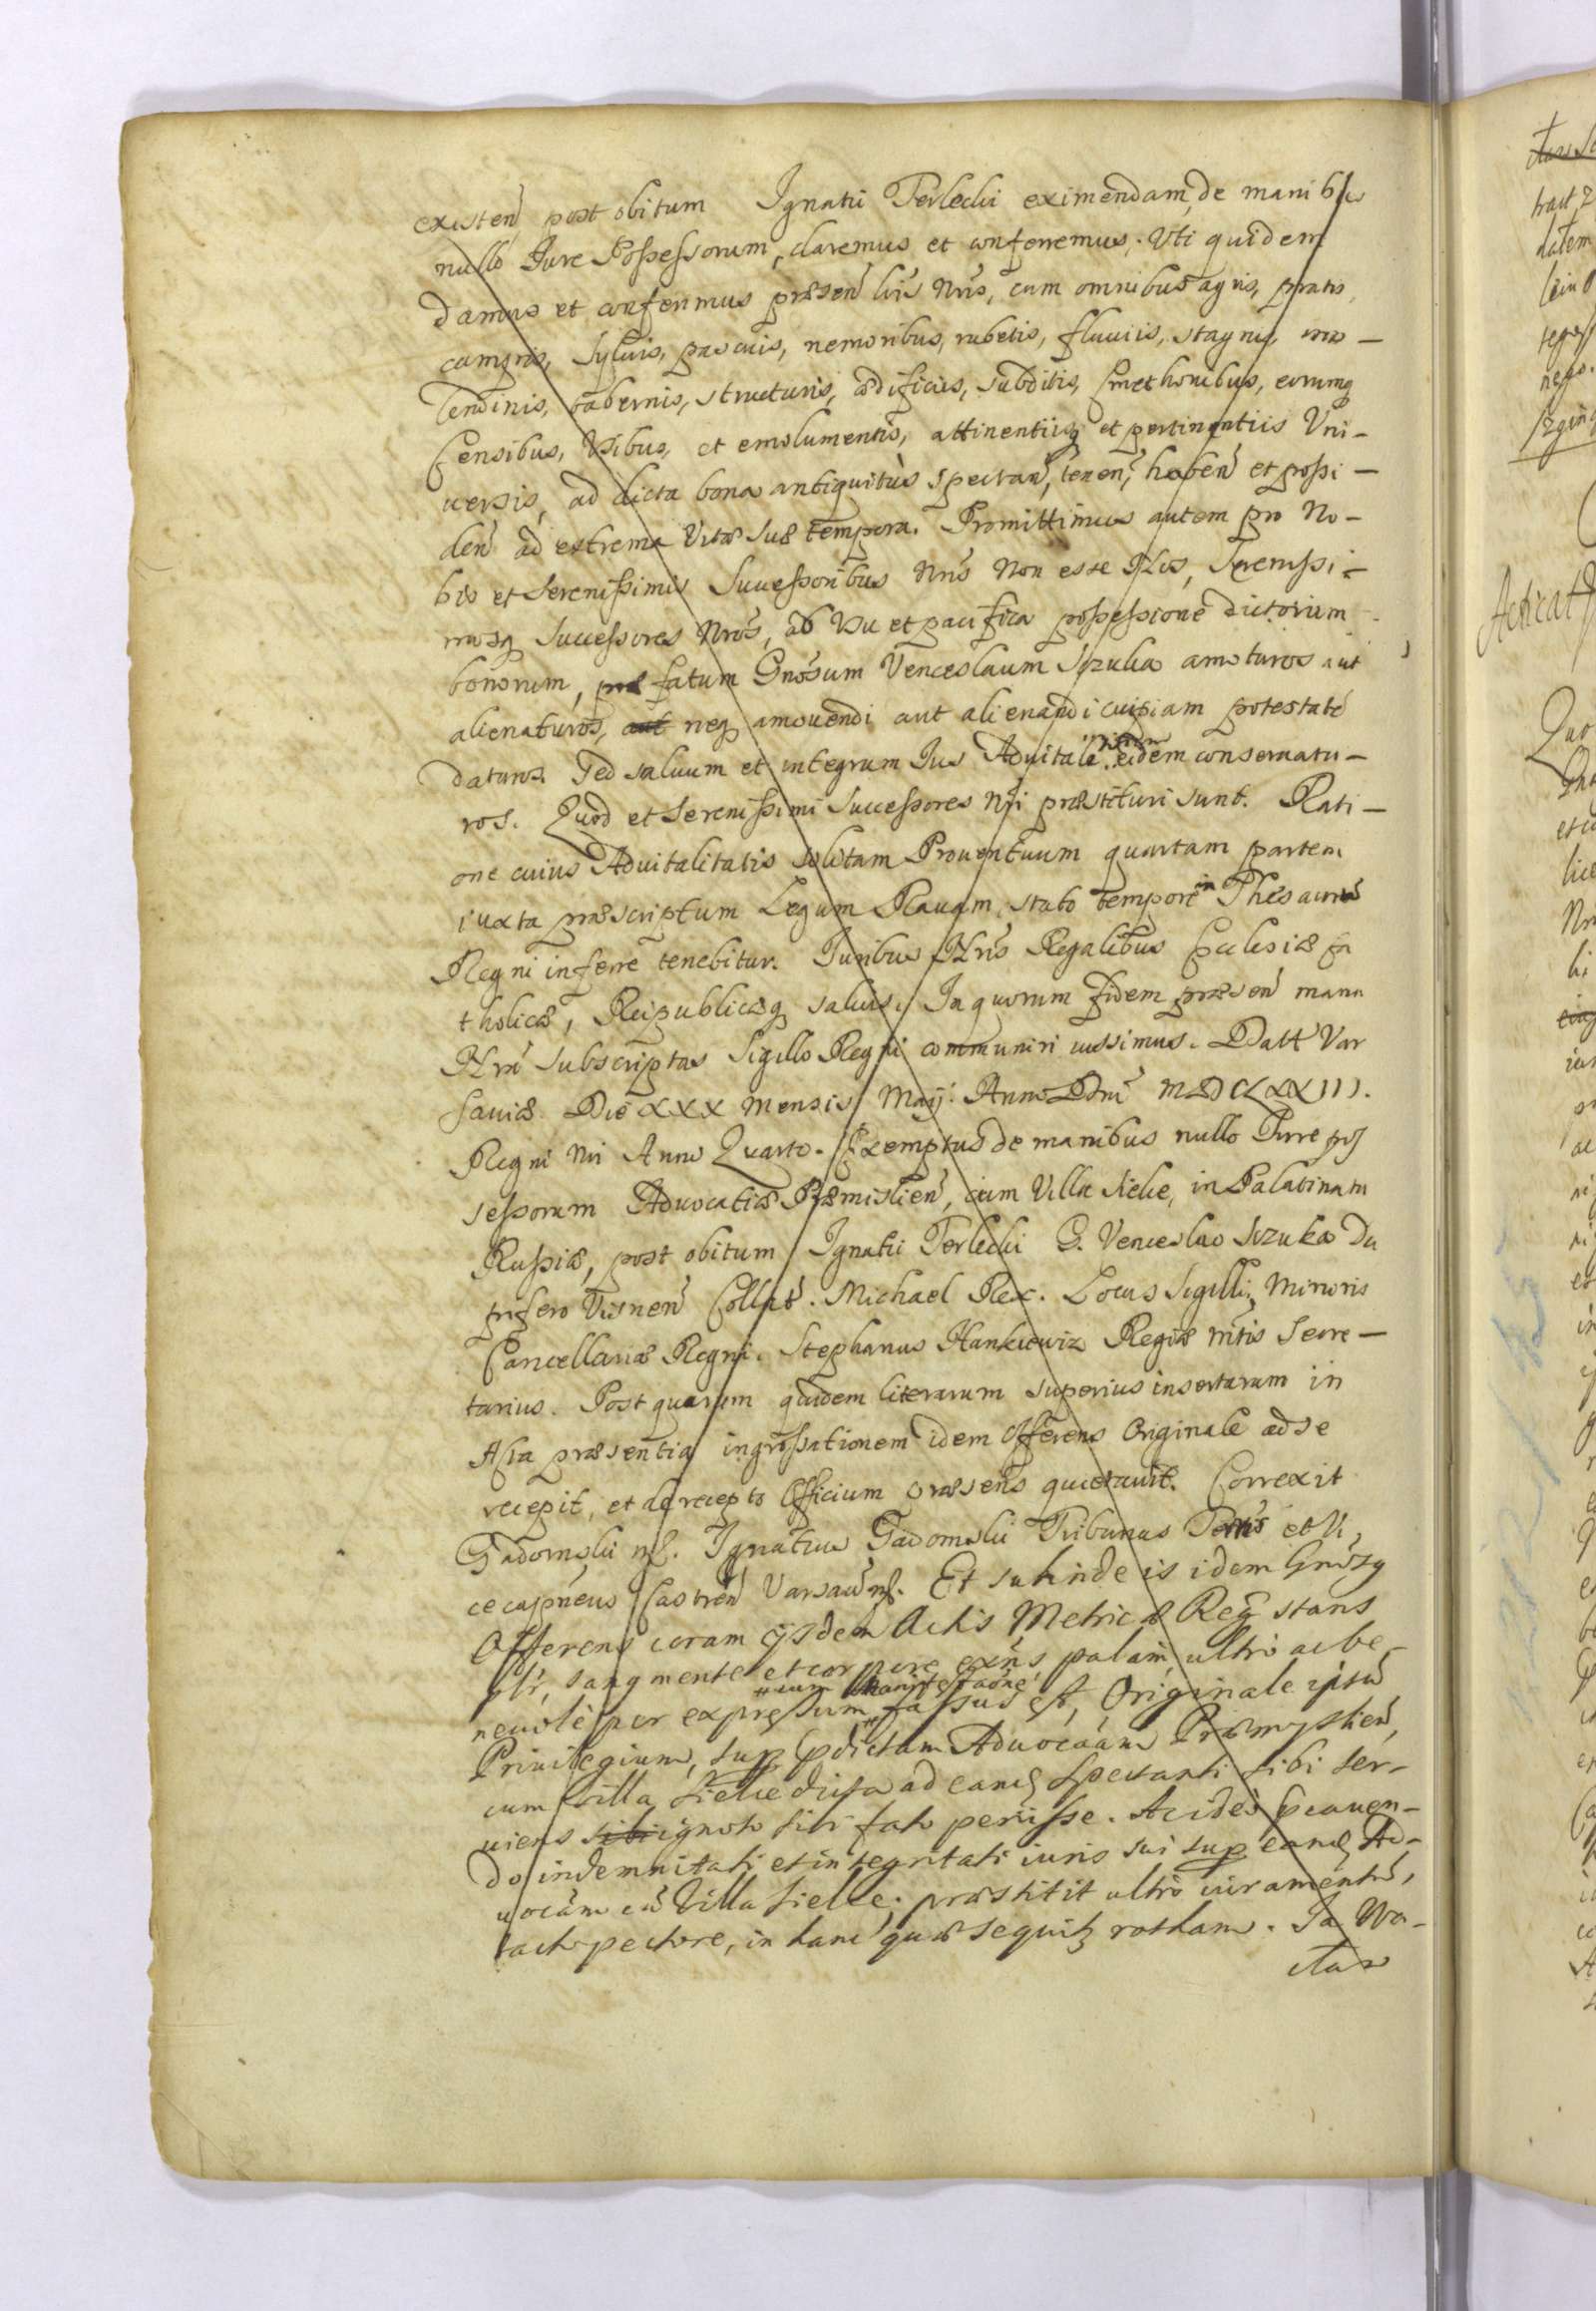 existen̄ post obitum Ignatii Terlecki eximendam, de manibus
nullo Jure Possessorum, daremus et conferremus. Uti quidem
damus et conferimus præsen̄ lris Nris, cum omnibus agris, pratis,
campis, sylvis, pascuis, nemoribus, rubetis, fluviis, stagnis, mo-
lendinis, tabernis, structuris, ædificiis, subditis, Cmethonibus, eorumq
Censibus, Usibus, et emolumentis, attinentiisq et pertinentiis Uni-
uersis, ad dicta bona antiquitùs spectan̄, tenen̄, haben̄ et possi-
den̄ ad extrema Vitæ suæ tempora. Promittimus autem pro No-
bis et Serenissimis Successoribus Nris Non esse Nos, Serenissi-
mosq Successores Nros, ab Usu et pacifica possessione dictorum
bonorum, præfatum Gnosum Venceslaum Szuka amoturos aut
alienaturos, aut neq amouendi aut alienandi cuipiam potestatē
daturos. Sed saluum et integrum Jus Aduitale ipsum eidem conseruatu-
ros. Quod et Serenissimi Successores Nri præstituri sunt. Rati-
one cuius Aduitalitatis solitam Prouentuum quartam partem
iuxta præscriptum Legum Rauam, stato tempore in Thesaurū
Regni inferre tenebitur. Juribus Nris Regalibus Ecclesiæ Ca
tholicæ, Reipublicæq saluis. In quorum fidem præsen̄ manu
Nrā subscriptas Sigillo Regni communiri iussimus. Datt Var
sauiæ Die XXX mensis Maij Anno Dni MDCLXXIII.
Regni Nri Anno Quarto. Exemptus de manibus nullo Jure pos
sessorum Aduocatiæ Præmislien̄, cum Villa Sielie, in Palatinatu
Russiæ, post obitum Ignatii Terlecki G. Venceslao Szuka Da
pifero Visnen̄ Collat̄. Michael Rex. Locus Sigilli Minoris
Cancellariæ Regni. Stephanus Hankiewicz Regiæ Mtis Secre-
tarius. Post quarum quidem literarum superius insertarum in
Acta præsentia ingrossationem idem Offerens Originale ad se
recepit, et de recepto Officium præsens quietauit. Correxit
Gadomski mp. Ignatius Gadomski Tribunus Terris et Vi-
cecapneus Castren̄ Varsauien̄ mp. Et subinde is idem Gnosq
Offerens coram ijsdem Actis Metricæ Regn̄ stans
plr̄, sanq mente et corpore exn̄s palam, ultro ac be-
neuolè per expressum # cum Manifestaõne fassus est, Originale ipsū
Priuilegium, sup pdictam Aduocaãm Præmyslien̄,
cum villa Sielie dicta ad eamd spectanti sibi ser-
uiens sibi ignoto sibi fato periisse. Ac ideò praeuen-
do indemnitati et integritati iuris sui sup eand Ad-
uocãm cū Villa Sielie; præstitit ultrò iuramentū,
tacto pectore, in hanc quæ sequitz rotham. Ja Wa-
cław